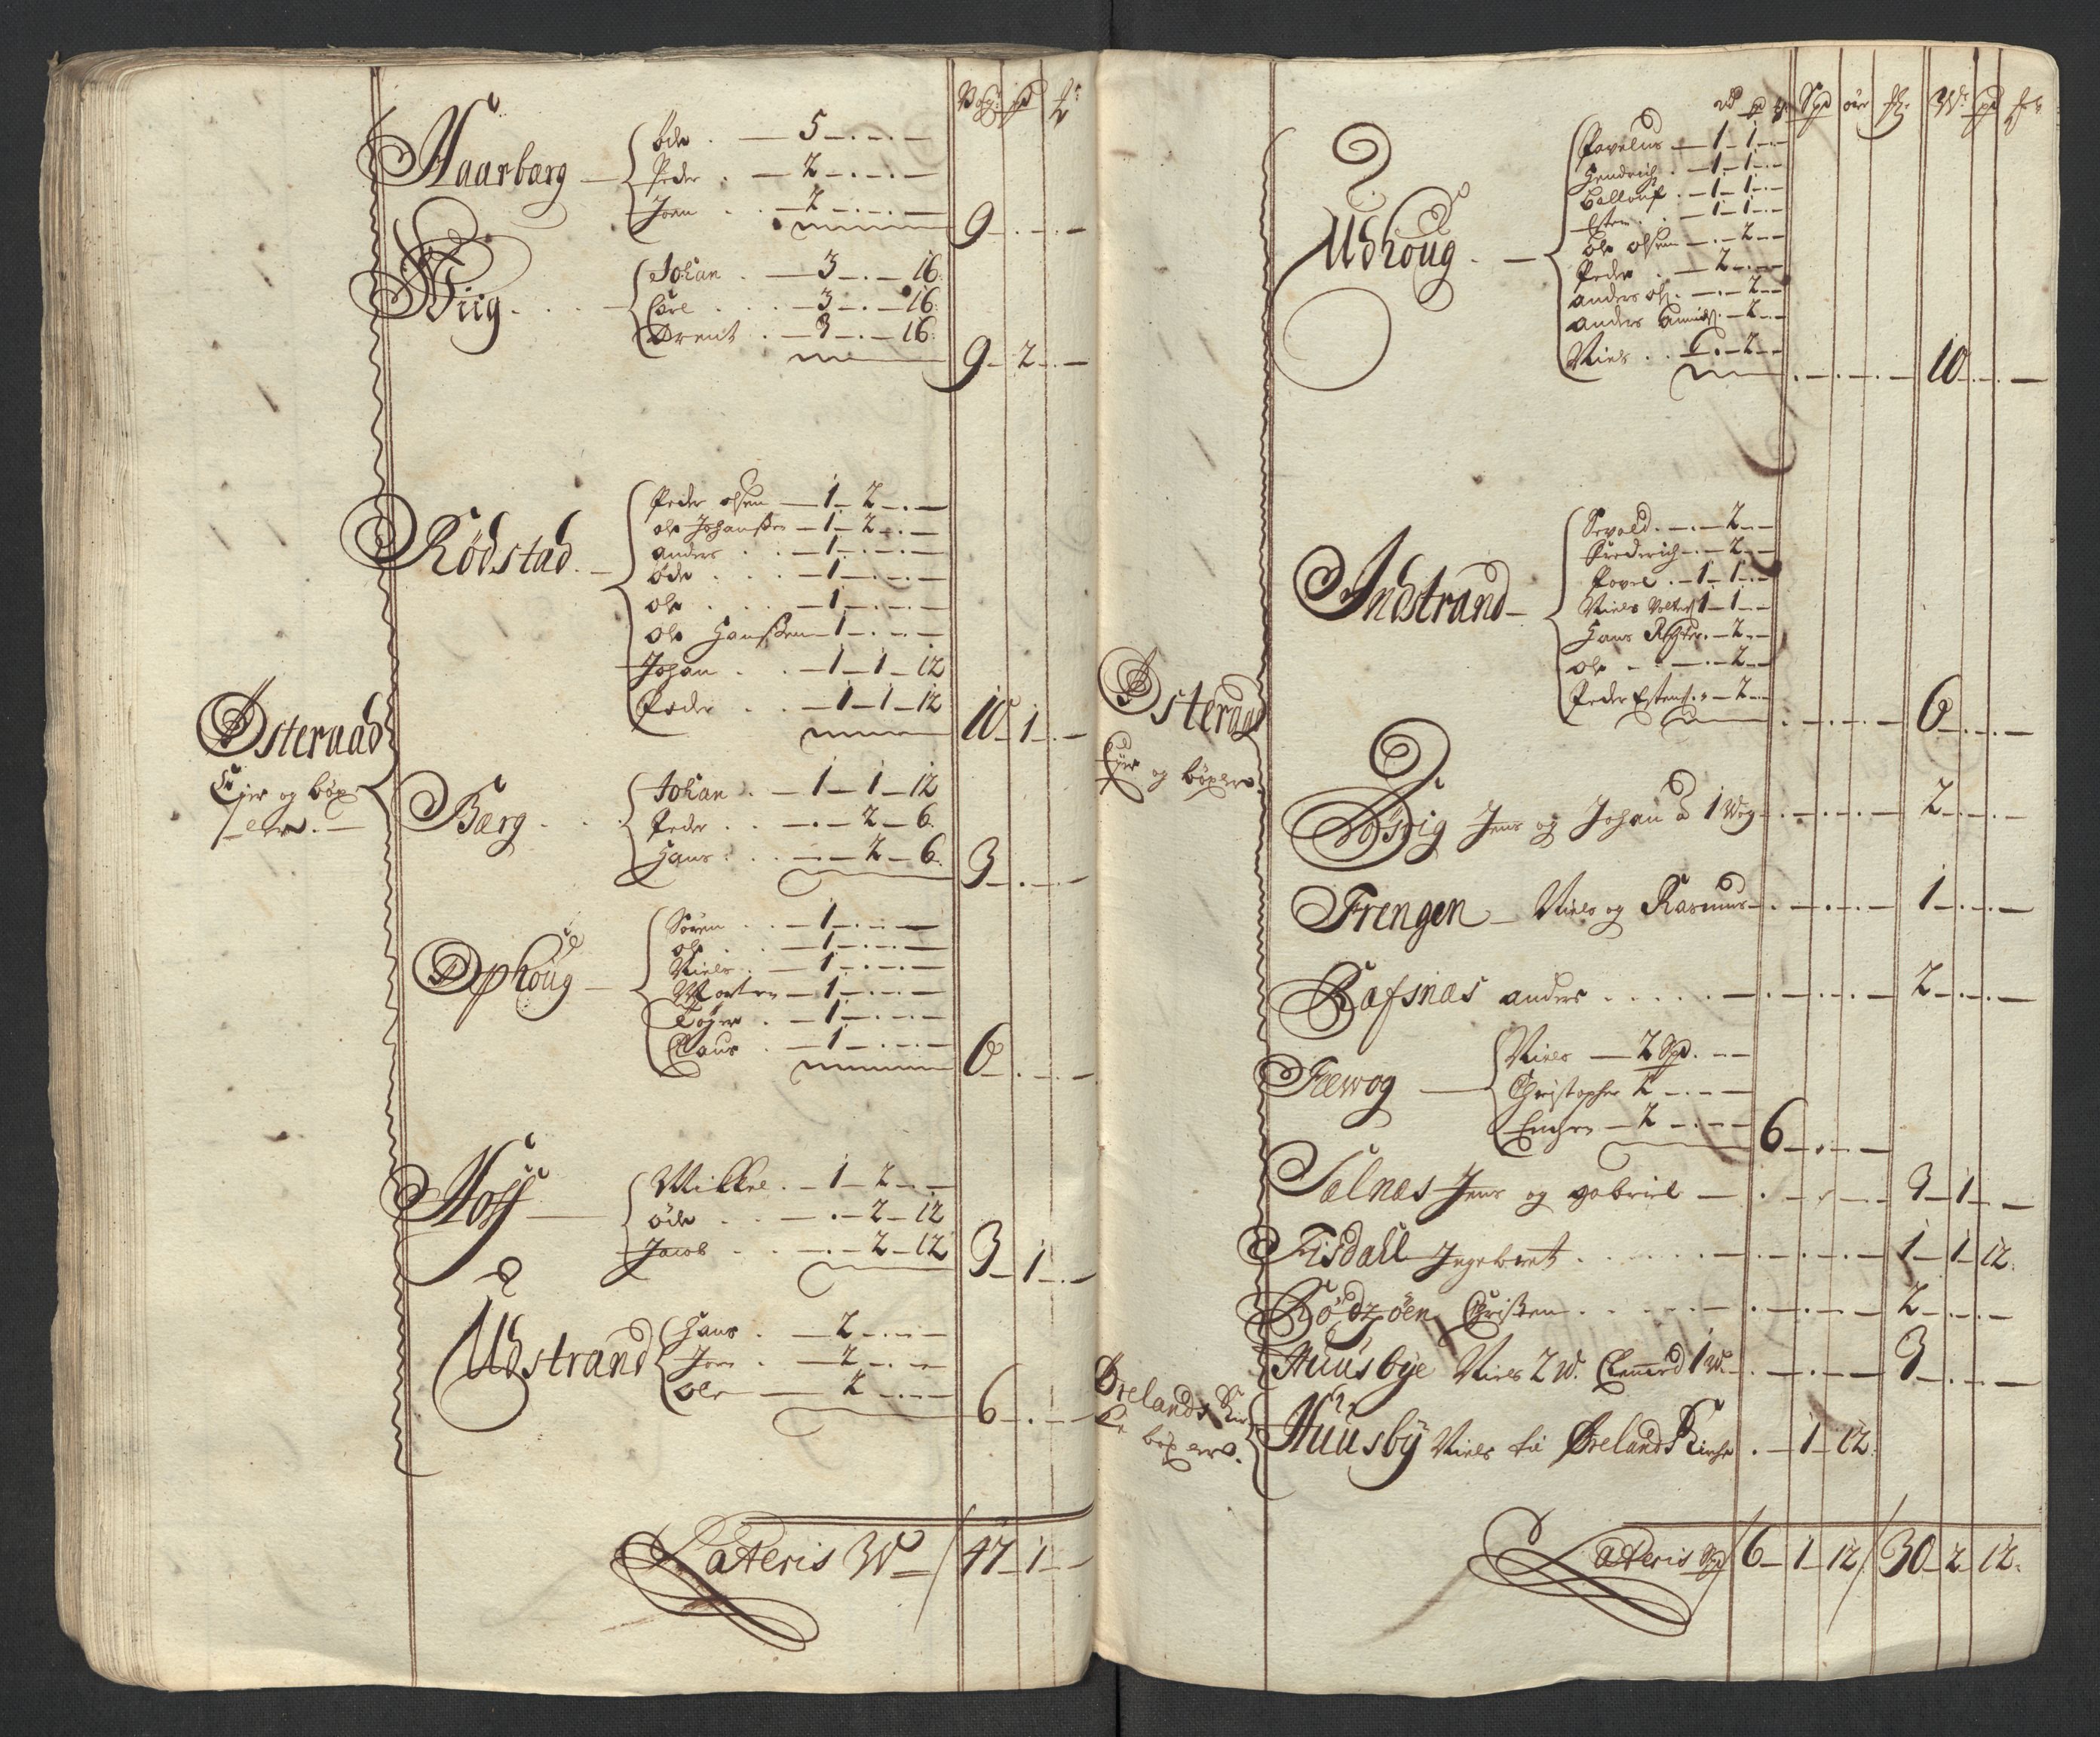 Wog: pd
Haarbarg
Ode . — 5 — . — . —
Peder . — 2 — . — . —
Joen . . — 2 — . — . —
9 — . — . —
Wiig . . .
Johan . — 3 — . — 16.
Carl . . . — 3 — . — 16.
Arent . — 3 — . — 16.
9 — 2 — . —
Rödstad.
Peder olsen — 1 — 2 — . —
ole Johansen — 1 — 2 — . —
anders . . — 1 — . — . —
öde . . . — 1 — . — . —
ole . . . — 1 — . — . —
ole Hanssen — 1 — . — . —
Johan . . — 1 — 1 — 12
Peder . . — 1 — 1 — 12
10 — 1 — . —
Østeraad
Ejer og böx
Berg . . .
Johan . — 1 — 1 — 12
Peder . . — . — 2 — 6.
Hans . . . — . — 2 — 6.
3 — . — . —
Ophoug —
Sören . . — 1 — . — . —
ole . . — 1 — . — . —
Niels . . — 1 — . — . —
Morten — 1 — . — . —
— 1 — . — . —
Claus . — 1 — . — . —
6 — . — . —
Hoff
Mikkel . — 1 — 2 — . —
öde . . — . — 2 — 12
Jacob . . — . — 2 — 12
3 — 1 — . —
Udstrand
Hans . — 2 — . — . —
Joen . — 2 — . — . —
ole — 2 — . — . —
6 — . — . —
Lateris W — 47 — 1 — . —
Spd öre W: pd
Udhoug . —
Povelus — 1 — 1 — . —
Hendrich . — 1 — 1 — . —
— 1 — 1 — . —
Esten . . — 1 — 1 — . —
ole olsen — . — 2 — . —
Peder . — 2 — . — . —
anders ols. — . — 2 — . —
anders — . — 2 — . —
Niels . . — . — 2 — . —
. — . — . — 10 — . — . —
Indstrand —
Sevald . — . — 2 — . —
Friderich — . — 2 — . —
Povel . — 1 — 1 — . —
Niels 1 — 1 — . —
Hans . — 2 — . —
ole . . — . — 2 — . —
Peder Estens. — 2 — . —
. — . — . — 6 — . — . —
Østeraad
Ejer og böxler.
Jens og Johan a 1 Wog — . — . — . — 2 — . — . —
Frengen — Niels og Rasmus — . — . — . — 1 — . — . —
Rafsnæs anders . . . . . — . — . — . — 2 — . — . —
Feewog —
Niels — 2 Spd. — . —
Christopher 2 — . — . —
— 2 — . — . —
6 — . — . —
Sælnæs Jens og gabriel — . — . — . — 3 — 1 — . —
Fisdall Ingebret . . . . . — . — . — . — 1 — 1 — 12.
Christen . . . . . — . — . — . — 2 — . — . —
Huusbye Niels 2 W. 1 W — . — . — . — 3 — . — . —
Ørelands Kir
ke böxler.
Huusby Niels til Ørelands Kirche . — 1 — 12.
Lateris Spd 6 — 1 — 12 30 — 2 — 12.